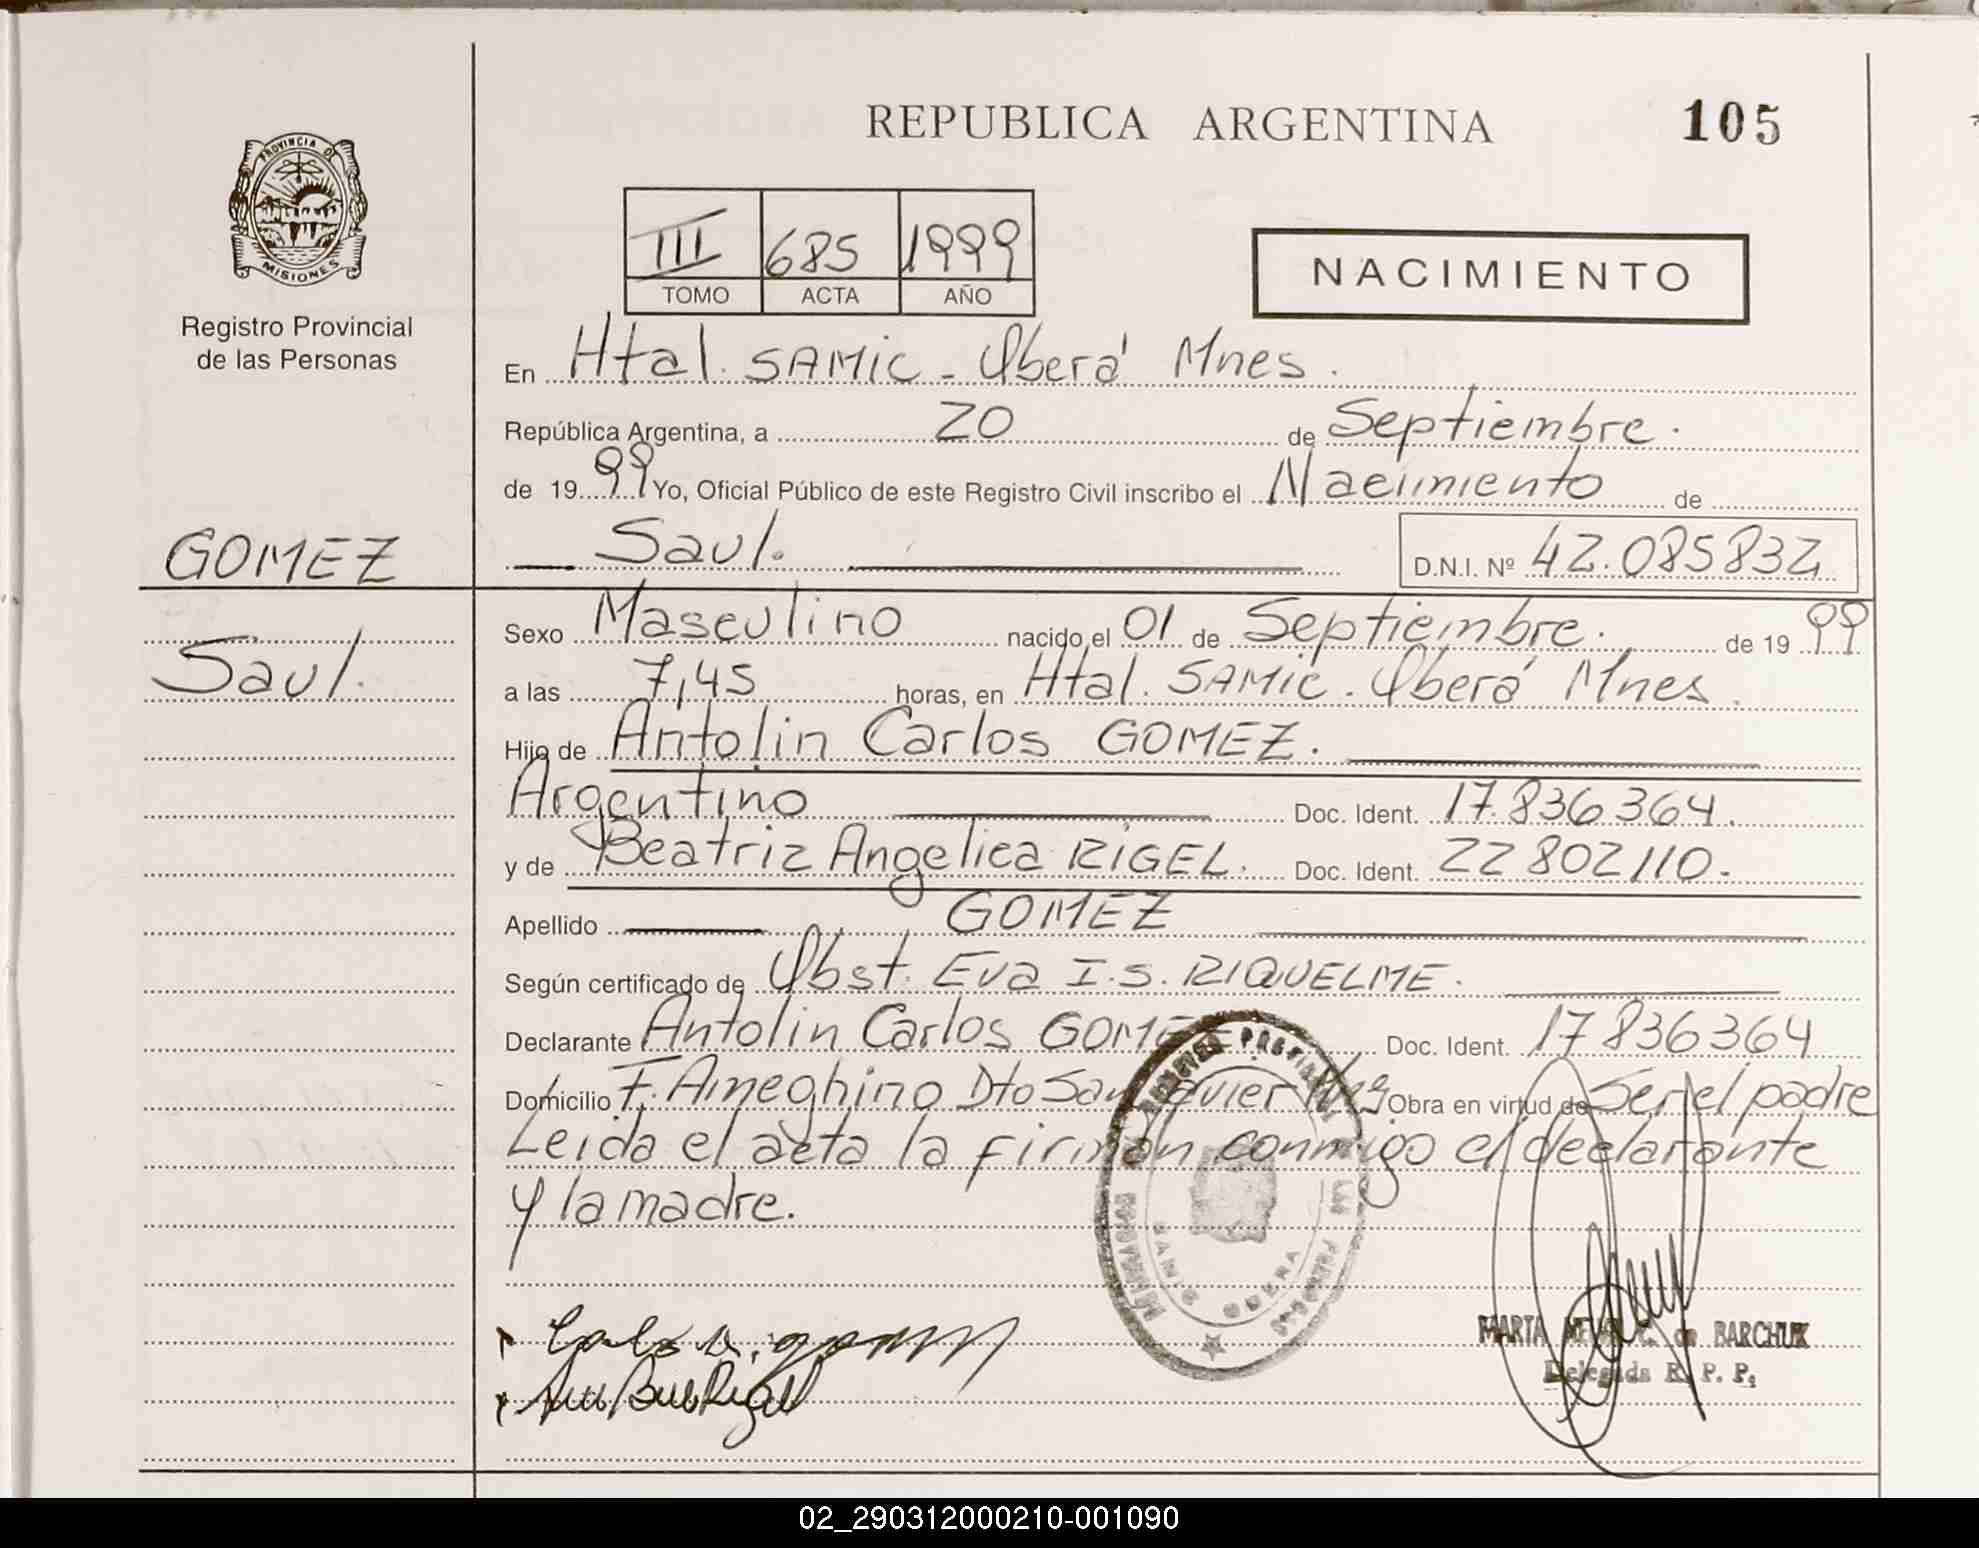 REPUBLICA ARGENTINA
105
PROVINCIA DE
MISIONES
Registro Provincial
de las Personas
III 685 1999
TOMO ACTA AÑO
NACIMIENTO
En Htal. SAMIC - Oberá Mnes.
República Argentina, a 20 de Septiembre.
de 1999 Yo, Oficial Público de este Registro Civil inscribo el Nacimiento de
Saul.
D.N.I. Nº 42.085832
GOMEZ
Saul.
Sexo Masculino nacido el 01 de Septiembre. de 1999
a las 7,45 horas, en Htal. SAMIC. Oberá Mnes.
Hijo de Antolin Carlos GOMEZ.
Argentino Doc. Ident. 17.836364.
y de Beatriz Angelica RIGEL. Doc. Ident. 22802110.
Apellido GOMEZ
Según certificado de Obst. Eva I.S. RIQUELME.
Declarante Antolin Carlos GOMEZ Doc. Ident. 17836364
Domicilio F. Ameghino Dto San Javier Mnes Obra en virtud de Ser el padre
Leida el acta la firman conmigo el declarante
y la madre.
MARTA C. de BARCHUK
Delegada R. P. P.
02_290312000210-001090